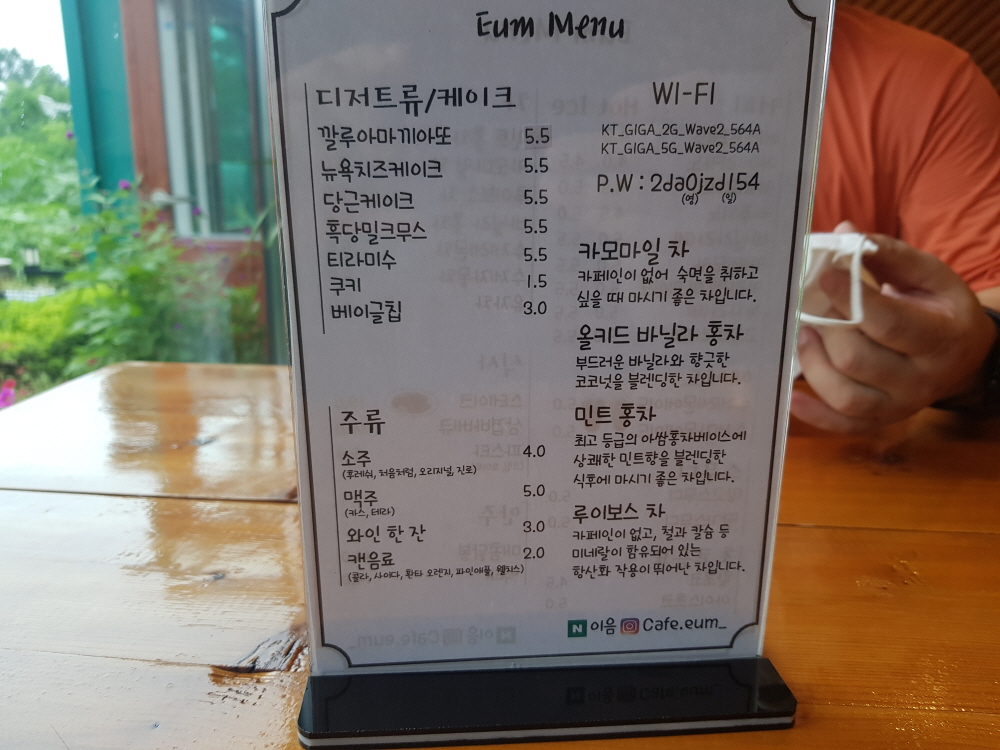 Eum Menu
디저트류/케이크
깔루아마끼아또 5.5
뉴욕치즈케이크 5.5
당근케이크 5.5
흑당밀크무스 5.5
티라미수 5.5
쿠키 1.5
베이글칩 3.0
주류
소주 4.0
(후레쉬, 처음처럼, 오리지널, 진로)
맥주 5.0
(카스, 테라)
와인 한 잔 3.0
캔음료 2.0
(콜라, 사이다, 환타 오렌지, 파인애플, 웰치스)
WI-FI
KT_GIGA_2G_Wave2_564A
KT_GIGA_5G_Wave2_564A
P.W : 2da0jzd154
(영) (일)
카모마일 차
카페인이 없어 숙면을 취하고
싶을 때 마시기 좋은 차입니다.
올키드 바닐라 홍차
부드러운 바닐라와 향긋한
코코넛을 블렌딩한 차입니다.
민트 홍차
최고 등급의 아쌈홍차베이스에
상쾌한 민트향을 블렌딩한
식후에 마시기 좋은 차입니다.
루이보스 차
카페인이 없고, 철과 칼슘 등
미네랄이 함유되어 있는
항산화 작용이 뛰어난 차입니다.
N 이음 Cafe.eum_